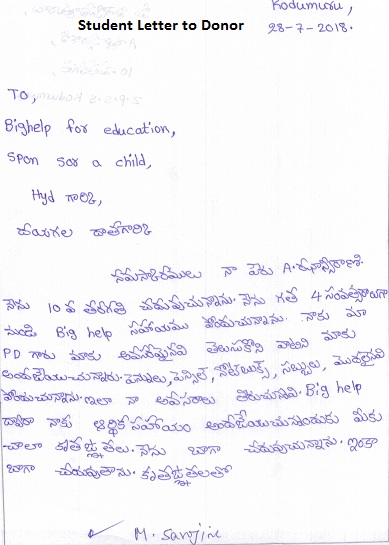 Kodumuru,
Student Letter to Donor
28-7-2018.
TO,
Bighelp for education,
Spon sar a child,
Hyd గారికి,
దయగల దాతగారికి
నమస్కారములు నా పేరు A.
నేను 10 వ తరగతి చదువుచున్నాను. నేను గత 4 సంవత్సరాలుగా
నుండి Big help సహాయము పొందుచున్నాను. నాకు మా
PD గారు మాకు అవసరమైనవి తెలుసుకొని వాటిని మాకు
అందజేయుచున్నారు. పెన్నులు, పెన్సిల్, నోట్‌బుక్స్, సబ్బులు, మొదలైనవి
పొందుచున్నాను. ఇలా నా అవసరాలు తీరుచున్నవి. Big help
ద్వారా నాకు ఆర్థిక సహాయం అందజేయుచున్నందుకు మీకు
చాలా కృతజ్ఞతలు. నేను బాగా చదువుచున్నాను. ఇంకా
బాగా చదువుతాను. కృతజ్ఞతలతో
M. Sarojini